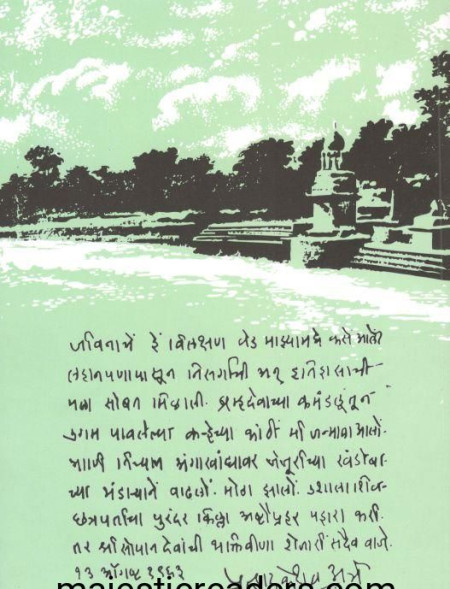 जीवनाचें हें विलक्षण वेड माझ्यामधे कसे आले?
लहानपणापासून निसर्गाची अन् इतिहासाची
मला सोबत मिळाली. ब्रम्हदेवाच्या कमंडलूंतून
उगम पावलेल्या कऱ्हेच्या कांठीं मी जन्माला आलों.
आणि निव्वळ अंगाखांद्यावर जेजुरीच्या खंडोबा-
च्या भंडाऱ्याने वाढलों. मोठा झालों. उशाला शिव-
छत्रपतींचा पुरंदर किल्ला अष्टौप्रहर पहारा करी.
तर श्रीसोपान देवांची भक्तिवीणा शेजारीं सदैव वाजे.
१३ ऑगस्ट १९६३
प्रल्हाद केशव अत्रे
majesticreaders.com